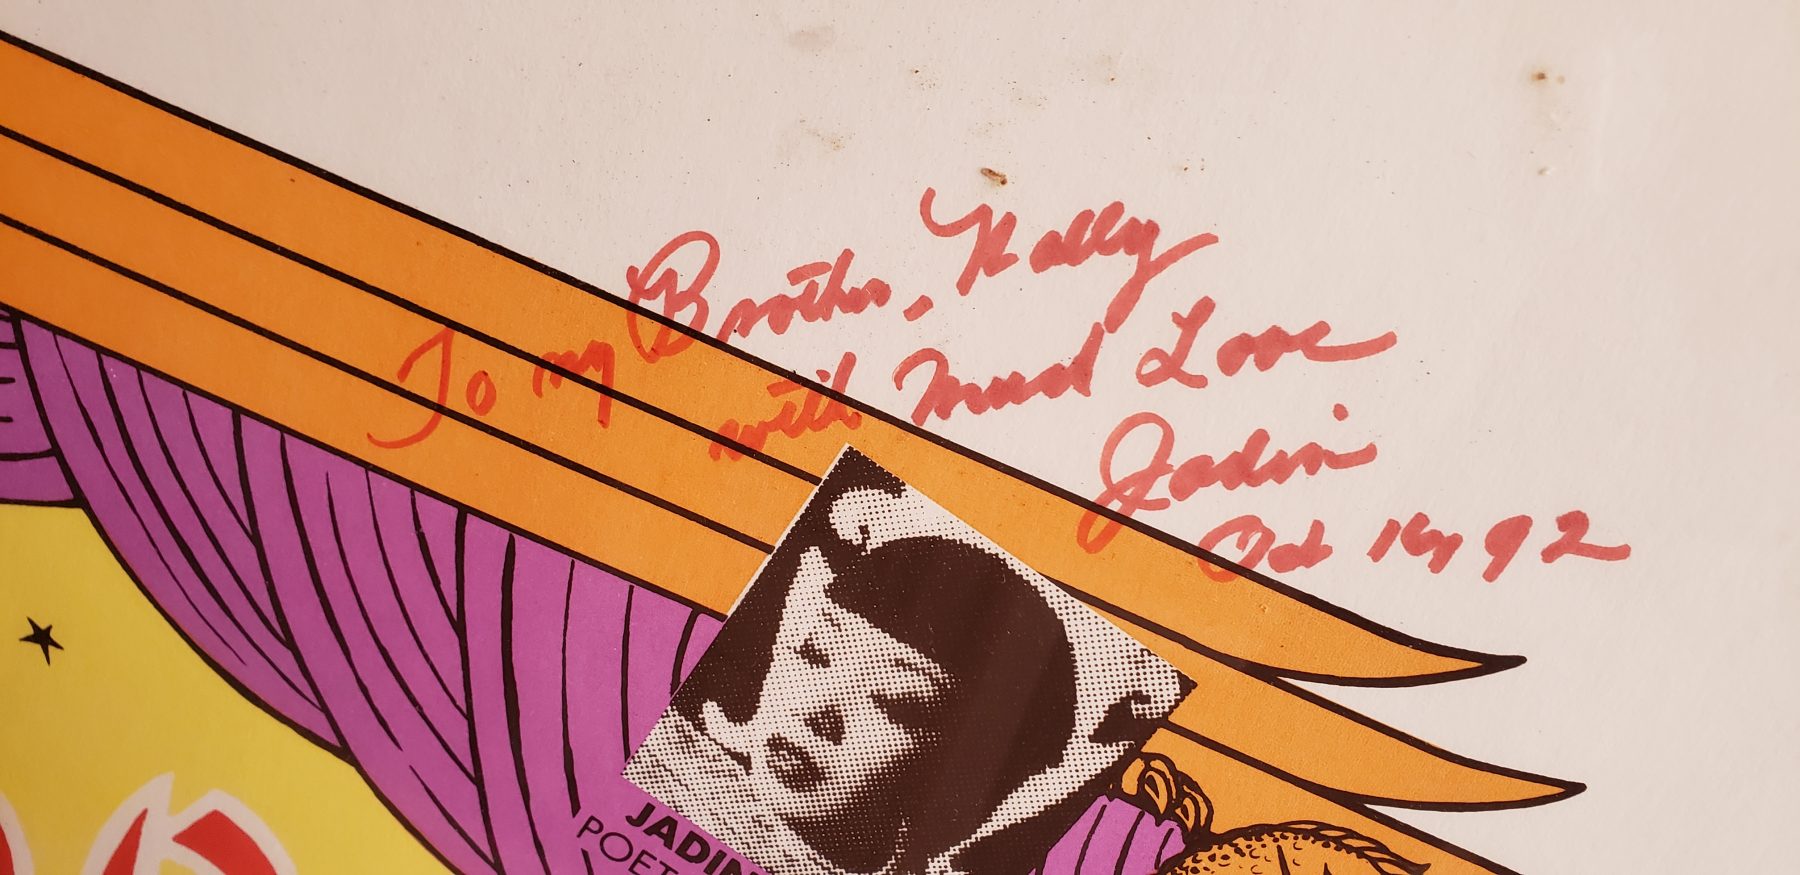 To my Brother, Wally
with Much Love
Jadin
Oct 92
JADIN
POET